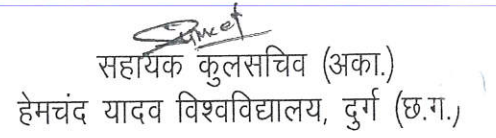 सहायक कुलसचिव (अका.)
हेमचंद यादव विश्वविद्यालय, दुर्ग (छ.ग.)